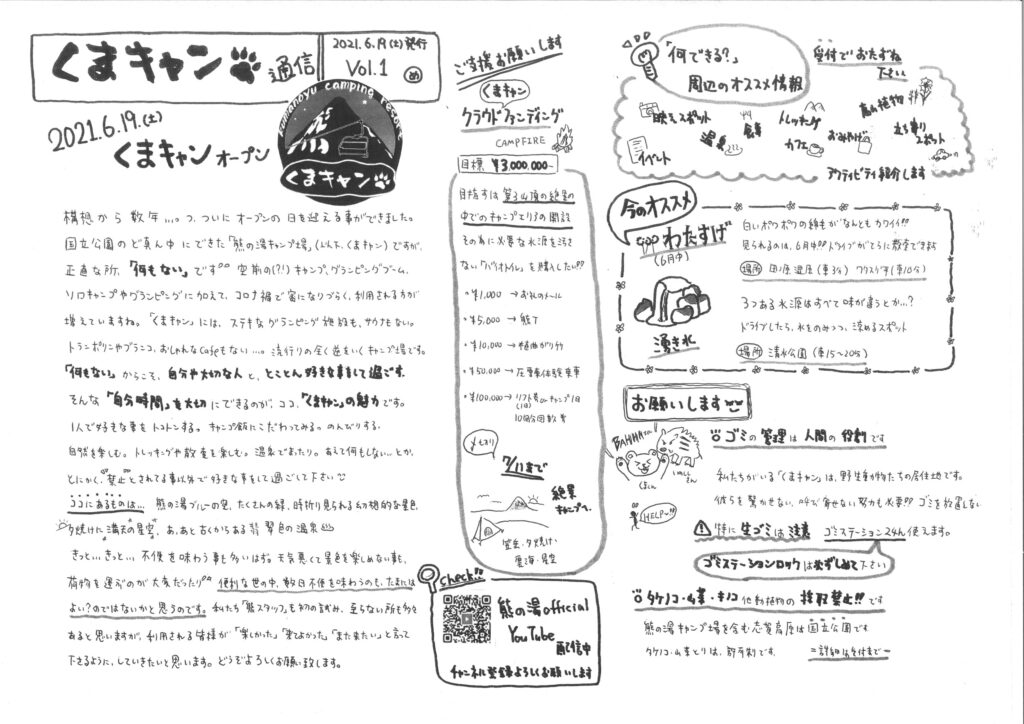 くまキャン通信
2021.6.19(土)発行
Vol.1
め
2021.6.19.(土)
くまキャンオープン
kumanoyu camping resort
熊
くまキャン
構想から数年…。つ、ついにオープンの日を迎える事ができました。
国立公園のど真ん中にできた「熊の湯キャンプ場」(以下、くまキャン)ですが、
正直な所、「何もない」です 空前の(?!)キャンプ、グランピングブーム、
ソロキャンプやグランピングに加えて、コロナ禍で密になりづらく、利用される方が
増えていますね。「くまキャン」には、ステキなグランピング施設も、サウナもない。
トランポリンやブランコ、おしゃれなCafeもない…。流行りの全く逆をいくキャンプ場です。
「何もない」からこそ、自分や大切な人と、とことん好きな事をして過ごす。
そんな「自分時間」を大切にできるのが、ココ、「くまキャン」の魅力です。
1人で好きな事をトコトンする。キャンプ飯にこだわってみる。のんびりする。
自然を楽しむ。トレッキングや散策を楽しむ。温泉でまったり。あえて何もしない…とか、
とにかく、禁止とされてる事以外で好きな事をして過ごして下さい
ココにあるものは… 熊の湯ブルーの空、たくさんの緑、時折り見られる幻想的な景色
夕焼けに満天の星空、あ、あと古からある翡翠色の温泉
きっと…きっと…不便を味わう事も多いはず。天気悪くて景色を楽しめない事も、
荷物を運ぶのが大変だったり 便利な世の中、数日不便を味わうのも、たまには
よい?のではないかと思うのです。私たち「熊スタッフ」も初の試み、至らない所も多々
あると思いますが、利用される皆様が「楽しかった」「来てよかった」「また来たい」と言って
下さるように、していきたいと思います。どうぞよろしくお願い致します。
ご支援お願いします
くまキャン
クラウドファンディング
CAMPFIRE
目標 ¥3,000,000-
目指すは第3山頂の絶景の
中でのキャンプエリアの開設
その為に必要な水源を汚さ
ない「バイオトイレ」を購入したい!!!
・¥1,000 → お礼のメール
・¥5,000 → 熊T
・¥10,000 → 根曲がり竹
・¥50,000 → 圧雪車体験乗車
・¥100,000 → リフト券orキャンプ1日
(1日)
10回分回数券
〆切り
7/11まで
絶景
キャンプへ。
星空・夕焼け・
雲海・星空
check!!
熊の湯official
YouTube
配信中
チャンネル登録よろしくお願いします
「何できる?」
周辺のオススメ情報
受付でおたずね
下さい
映えスポット
食事
トレッキング
高山植物
温泉
カフェ
おみやげ
立ち寄り
スポット
イベント
アクティビティ紹介します
今のオススメ
わたすげ
(6月中)
白いポワポワの綿毛がなんともカワイイ!!
見られるのは、6月中!!ドライブがてらに散策できます
場所 田ノ原湿原(車3分) ワタスゲ平(車10分)
湧き水
3つある水源はすべて味が違うとか…?
ドライブしたら、水をのみつつ、涼めるスポット
場所 清水公園(車15〜20分)
お願いします
BAHHA
くまくん
いのししさん
HELP〜!!
ゴミの管理は人間の役割です
私たちがいる「くまキャン」は、野生動物たちの居住地です。
彼らを驚かせない、呼び寄せない努力も必要!! ゴミを放置しない
特に生ゴミは注意 ゴミステーション24h使えます。
ゴミステーションロックは必ずしめて下さい
タケノコ・山菜・キノコ 他動植物の採取禁止!!です
熊の湯キャンプ場を含む志賀高原は国立公園です
タケノコ・山菜とりは、即刻刑です。
=詳細は受付まで=